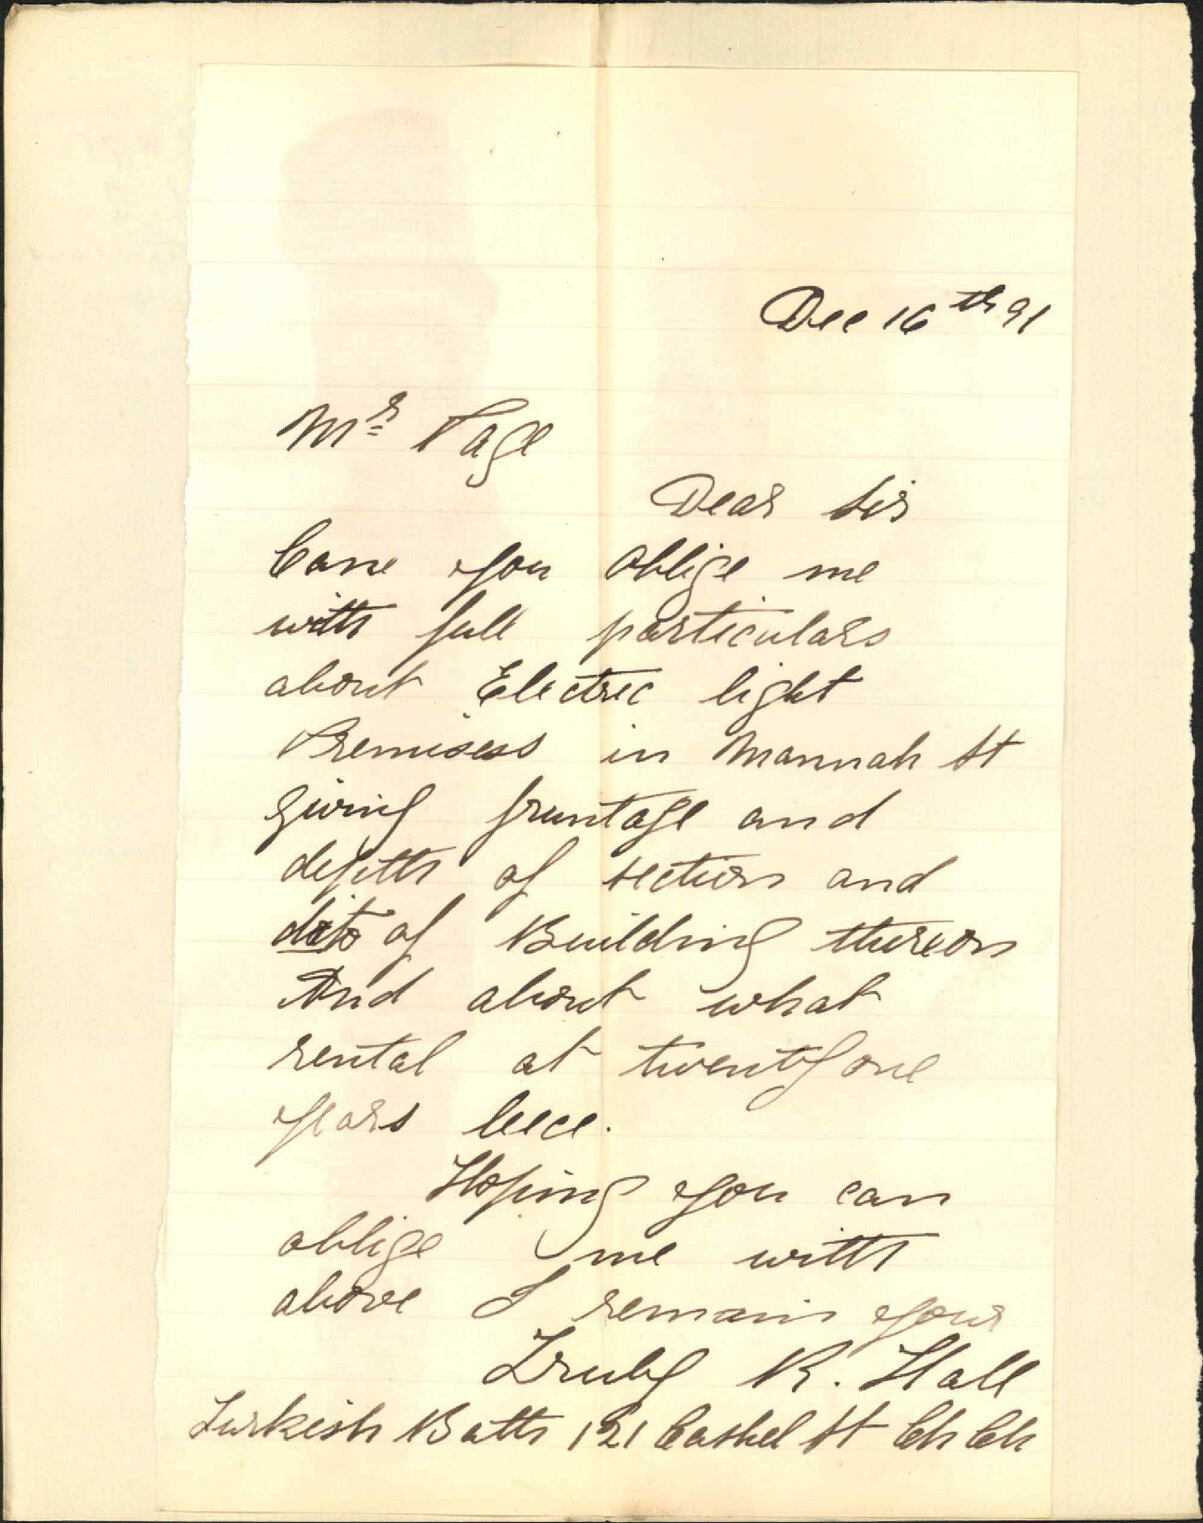 Dec 16th 91
Mr Page
Dear Sir
Cane you oblige me
with full particulars
about Electric light
Premisess in Mannah St
giving fruntage and
depth of section and
dito of Building thereon
And about what
rental at twenty one
years leece.
Hoping you can
oblige me with
above I remain your
Truly R. Hall
Turkish Bath 121 Cashel St Ch Ch